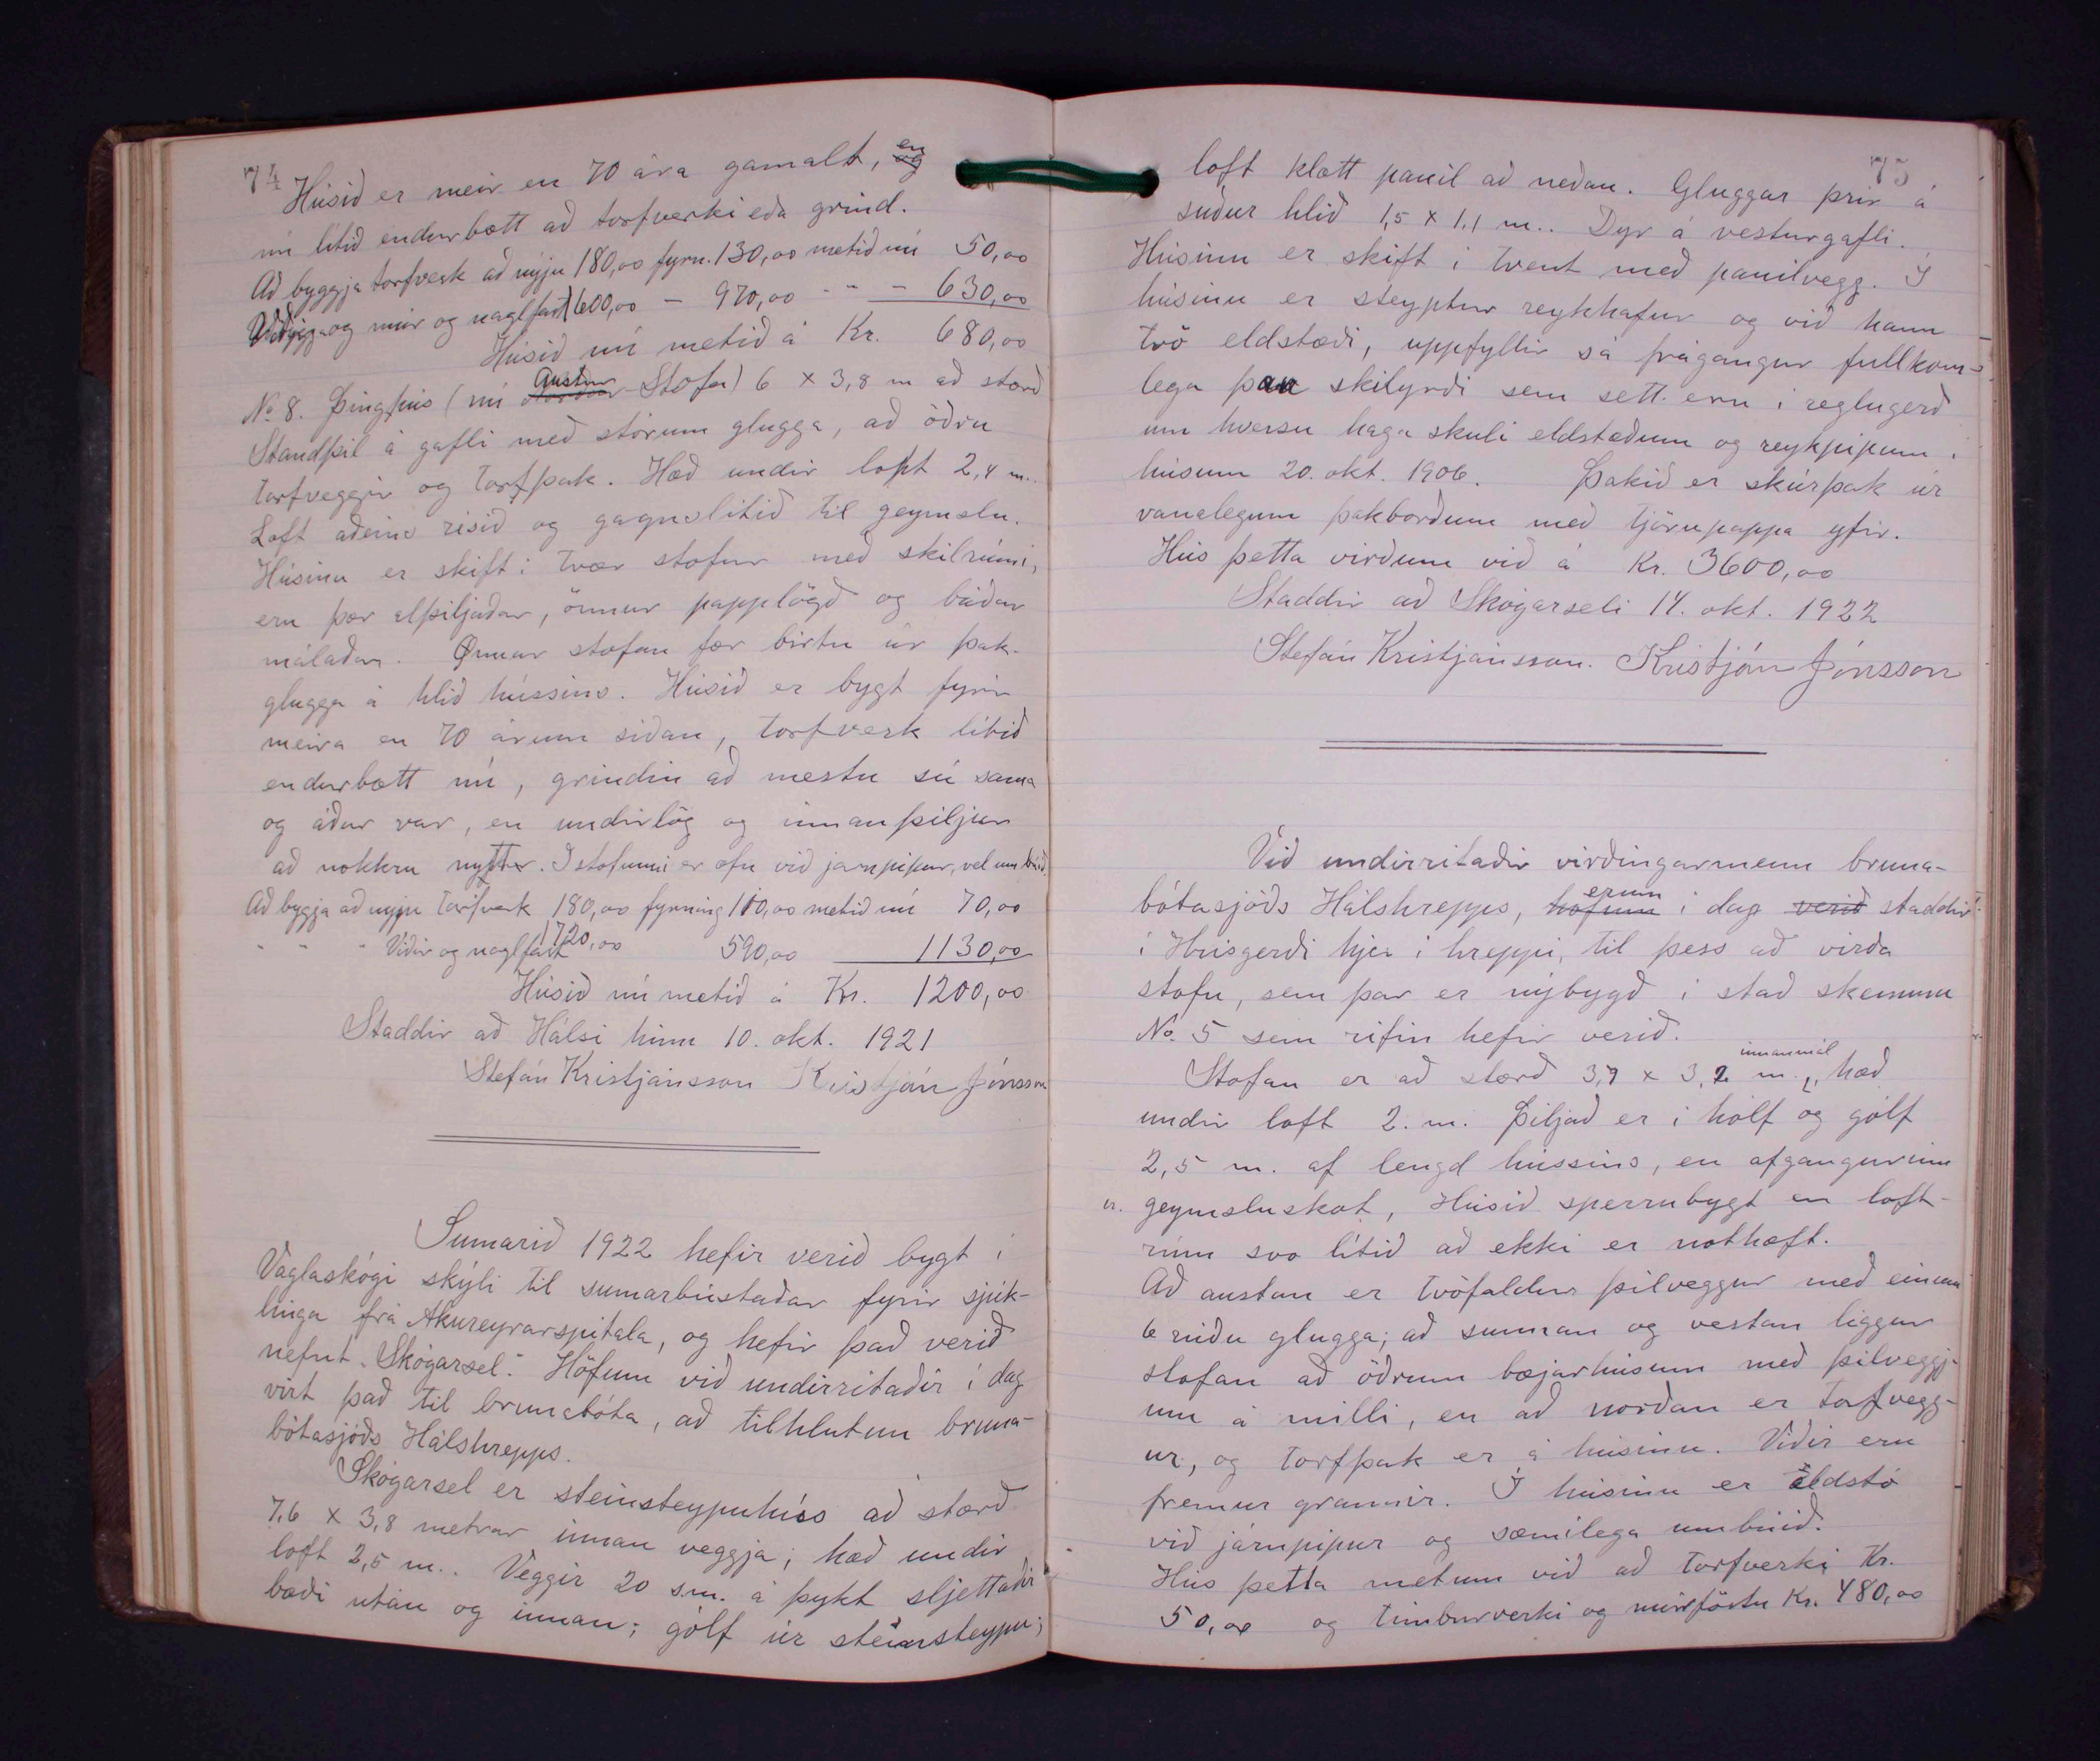 74
Húsið er meir en 70 ára gamalt, en og
nú lítið endurbætt að torfverki eða grind.
Að byggja torfverk að nýju 180,00 fyrn. 130,00 metið nú 50,00
og múr og naglfast 1600,00 — 970,00 - - — 630,00
Húsið nú metið á Kr. 680,00
No 8. Þinghús (nú Austur Stofa) 6 x 3,8 m að stærð
Standþil á gafli með stórum glugga, að öðru
torfveggir og torfþak. Hæð undir lopt 2,4 m..
Loft aðeins risið og gagnslítið til geymslu.
Húsinu er skift í tvær stofur með skilrúmi,
eru þær alþiljaðar, önnur papplögð og báðar
málaðar. Önnur stofan fær birtu úr þak-
glugga á hlið hússins. Húsið er bygt fyrir
meira en 70 árum síðan, torfverk lítið
endurbætt nú, grindin að mestu sú sama
og áður var, en undirlög og innanþiljur
að nokkru nýtt. Í stofunni er ofn við járnpípur, vel um búið.
Að byggja að nýju torfverk 180,00 fyrning 110,00 metið nú 70,00
- - - Viðir og naglfast 1720,00 590,00 1130,00
Húsið nú metið á Kr. 1200,00
Staddir að Hálsi hinn 10. okt. 1921
Stefán Kristjánsson Kristján Jónsson
Sumarið 1922 hefir verið bygt í
Vaglaskógi skýli til sumarbústaðar fyrir sjúk-
linga frá Akureyrarspítala, og hefir það verið
nefnt „Skógarsel“. Höfum við undirritaðir í dag
virt það til brunabóta, að tilhlutun bruna-
bótasjóðs Hálshrepps.
Skógarsel er steinsteypuhús að stærð
7,6 x 3,8 metrar innan veggja; hæð undir
loft 2,5 m.. Veggir 20 sm. á þykt sljettaðir
bæði utan og innan; gólf úr steinsteypu;
75
loft klætt panil að neðan. Gluggar þrír á
suður hlið 1,5 x 1,1 m.. Dyr á vesturgafli.
Húsinu er skift í tvent með panilvegg. Í
húsinu er steyptur reykháfur og við hann
tvö eldstæði, uppfyllir sá frágangur fullkom-
lega þau skilyrði sem sett eru í reglugerð
um hversu haga skuli eldstæðum og reykpípum í
húsum 20. okt. 1906. Þakið er skúrþak úr
vanalegum þakborðum með tjörupappa yfir.
Hús þetta virðum við á Kr. 3600,00
Staddir að Skógarseli 14. okt. 1922
Stefán Kristjánsson. Kristján Jónsson
Við undirritaðir virðingarmenn bruna-
bótasjóðs Hálshrepps, höfum erum í dag verið staddir
í Hrísgerði hjer í hreppi, til þess að virða
stofu, sem þar er nýbygð í stað skemmu
No. 5 sem rifin hefir verið.
Stofan er að stærð 3,7 x 3,2 m. innanmál, hæð
undir loft 2. m. Þiljað er í hólf og gólf
2,5 m. af lengd hússins, en afgangurinn
er. geymsluskot, Húsið sperrubygt en loft-
rúm svo lítið að ekki er nothæft.
Að austan er tvöfaldur þilveggur með einum
6 rúðu glugga; að sunnan og vestan liggur
stofan að öðrum bæjarhúsum með þilveggj-
um á milli, en að norðan er torfvegg-
ur, og torfþak er á húsinu. Viðir eru
fremur grannir. Í húsinu er eldstó
við járnpípur og sæmilega umbúið.
Hús þetta metum við að torfverki Kr.
50,00 og timburverki og múrföstu Kr. 480,00